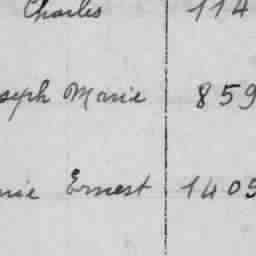 Charles 114
seph Marie 859
nie Ernest 1405